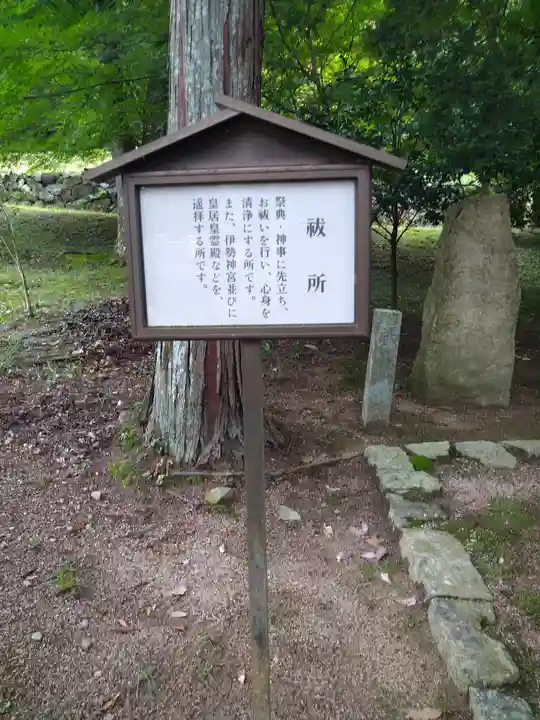 祓所
祭典・神事に先立ち、
お祓いを行い、心身を
清浄にする所です。
また、伊勢神宮並びに
皇居皇霊殿などを、
遥拝する所です。